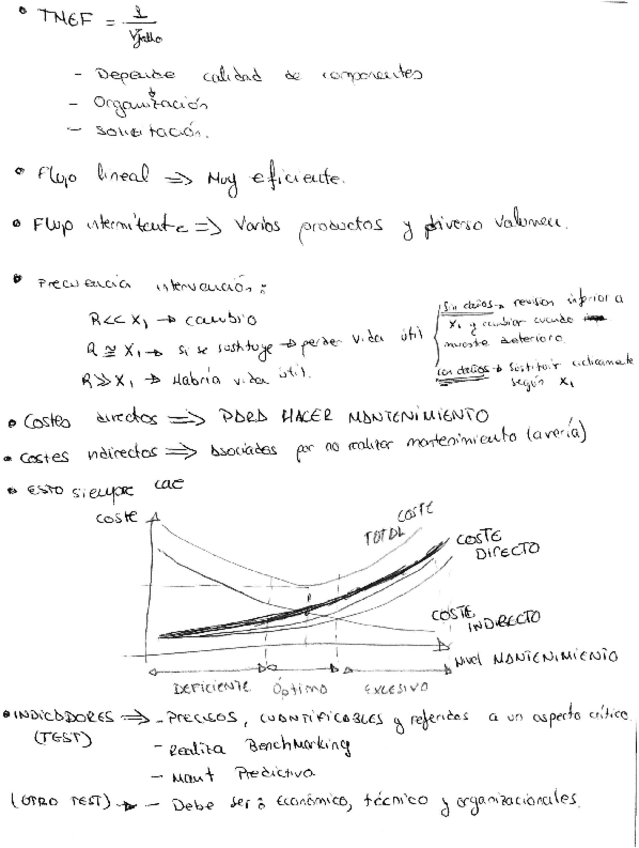 • TMEF = 1 / Vfallo
- Depende calidad de componentes
- Organización
- Solicitación.
• Flujo lineal => Muy eficiente.
• Flujo intermitente => Varios productos y diverso volumen.
• Frecuencia intervención:
R << X1 → cambio
R ≅ X1 → si se sustituye → perder vida útil
R >> X1 → Habría vida útil.
Sin daños → revisión inferior a
X1 y cambiar cuando
muestre deterioro.
con daños → Sustituir cíclicamente
según X1
• Costes directos => PARA HACER MANTENIMIENTO
• Costes indirectos => Asociados por no realizar mantenimiento (avería)
• ESTO siempre cae
COSTE
COSTE
TOTAL
COSTE
DIRECTO
COSTE
INDIRECTO
Nivel MANTENIMIENTO
DEFICIENTE ÓPTIMO EXCESIVO
• INDICADORES => - PRECISOS, CUANTIFICABLES y referidos a un aspecto crítico.
(TEST)
- Realiza BenchMarking
- Mant Predictivo
(OTRO TEST) → - Debe ser: Económico, técnico y organizacionales.